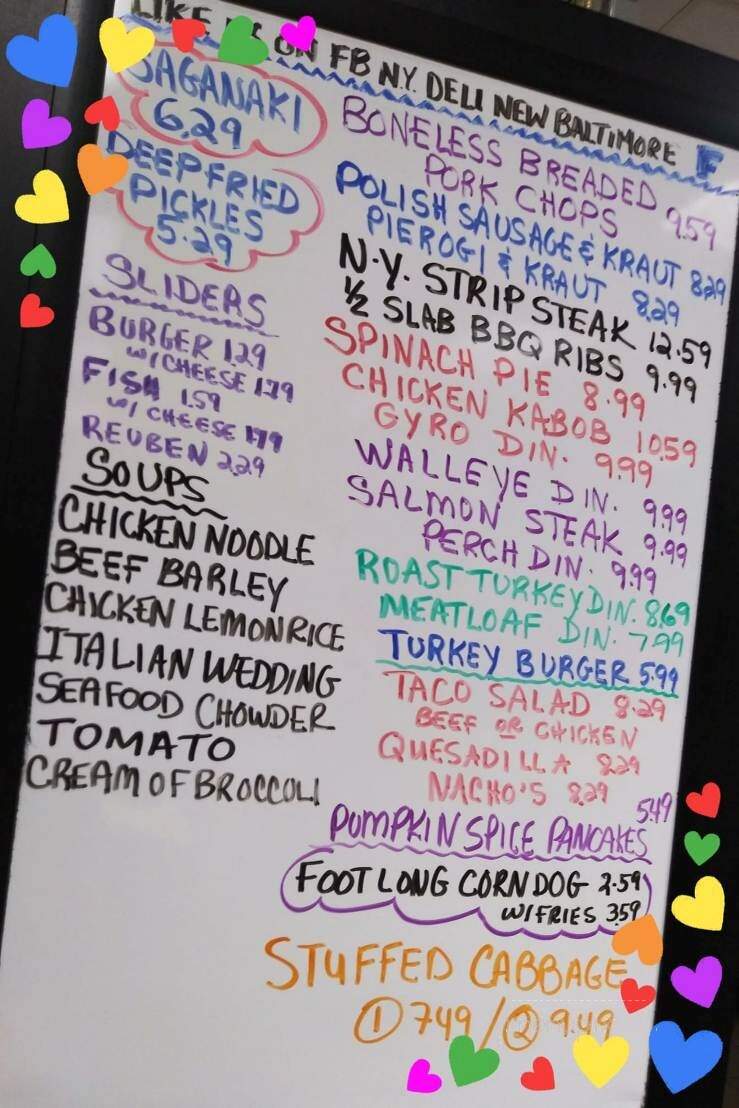 LIKE US ON FB N.Y. DELI NEW BALTIMORE F
SAGANAKI
6.29
DEEP FRIED
PICKLES
5.29
SLIDERS
BURGER 1.29
W/CHEESE 1.79
FISH 1.59
W/ CHEESE 1.79
REUBEN 2.29
SOUPS
CHICKEN NOODLE
BEEF BARLEY
CHICKEN LEMON RICE
ITALIAN WEDDING
SEAFOOD CHOWDER
TOMATO
CREAM OF BROCCOLI
BONELESS BREADED
PORK CHOPS 9.59
POLISH SAUSAGE & KRAUT 8.29
PIEROGI & KRAUT 8.29
N.Y. STRIP STEAK 12.59
1/2 SLAB BBQ RIBS 9.99
SPINACH PIE 8.99
CHICKEN KABOB 10.59
GYRO DIN. 9.99
WALLEYE DIN. 9.99
SALMON STEAK 9.99
PERCH DIN. 9.99
ROAST TURKEY DIN. 8.69
MEATLOAF DIN. 7.99
TURKEY BURGER 5.99
TACO SALAD 8.29
BEEF OR CHICKEN
QUESADILLA 8.29
NACHO'S 8.29
5.49
PUMPKIN SPICE PANCAKES
FOOT LONG CORN DOG 2.59
W/FRIES 3.59
STUFFED CABBAGE
① 7.49 / ② 9.49